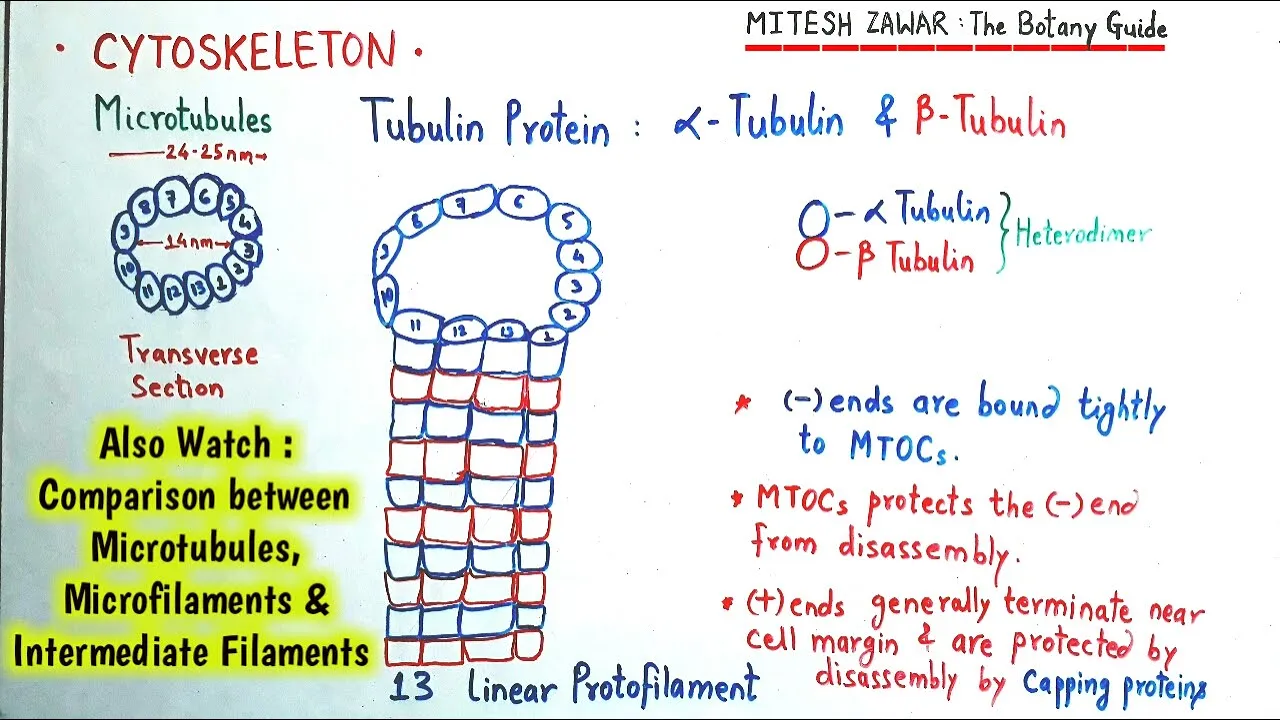 MITESH ZAWAR : The Botany Guide
• CYTOSKELETON •
Microtubules
24-25nm
7 6 5 4 3 2 1 13 12 11 10 9 8
14nm
Transverse
Section
Also Watch :
Comparison between
Microtubules,
Microfilaments &
Intermediate Filaments
Tubulin Protein : α-Tubulin & β-Tubulin
7 6 5 4 3 2 1 13 12 11 10 9 8
13 Linear Protofilament
α Tubulin
β Tubulin
Heterodimer
* (-) ends are bound tightly
to MTOCs.
* MTOCs protects the (-) end
from disassembly.
* (+) ends generally terminate near
cell margin & are protected by
disassembly by Capping proteins